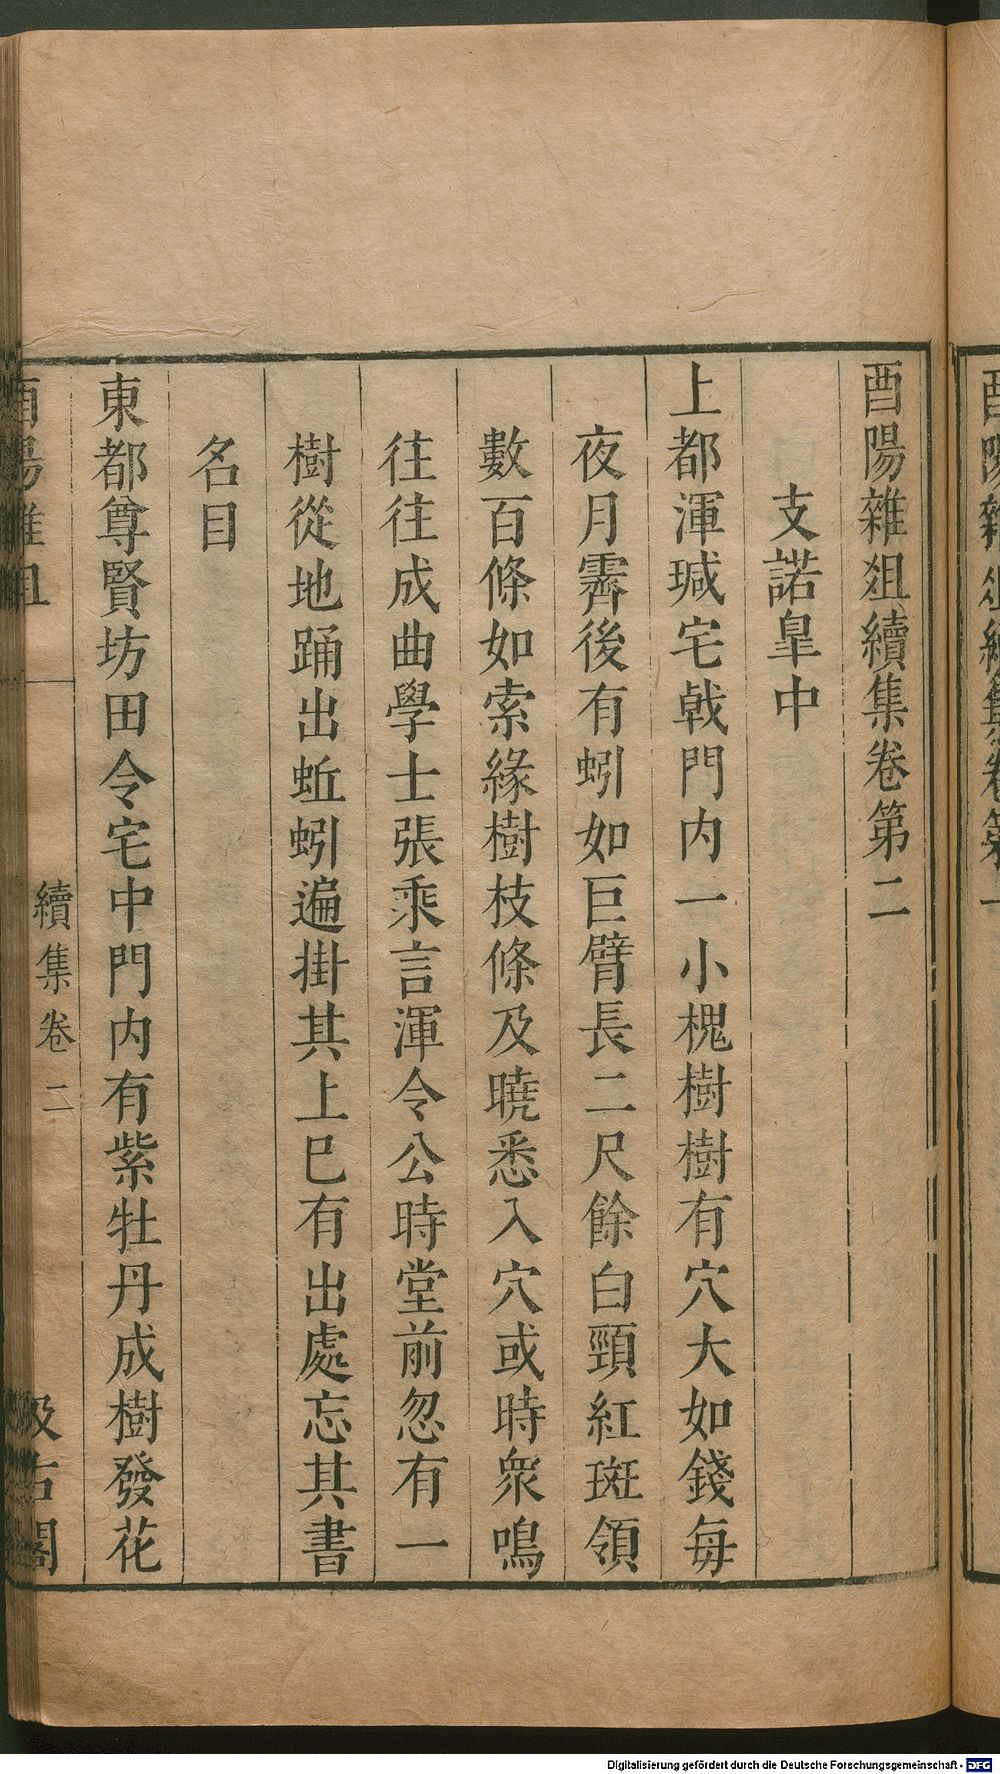 酉陽雜俎續集卷第二
支諾皐中
上都渾瑊宅戟門内一小槐樹樹有穴大如錢每
夜月霽後有蚓如巨臂長二尺餘白頸紅斑領
數百條如索緣樹枝條及曉悉入穴或時衆鳴
往往成曲學士張乘言渾令公時堂前忽有一
樹從地踊出蚯蚓遍掛其上巳有出處忘其書
名目
東都尊賢坊田令宅中門内有紫牡丹成樹發花
酉陽雜俎
續集卷二
汲古閣
Digitalisierung gefördert durch die Deutsche Forschungsgemeinschaft - DFG